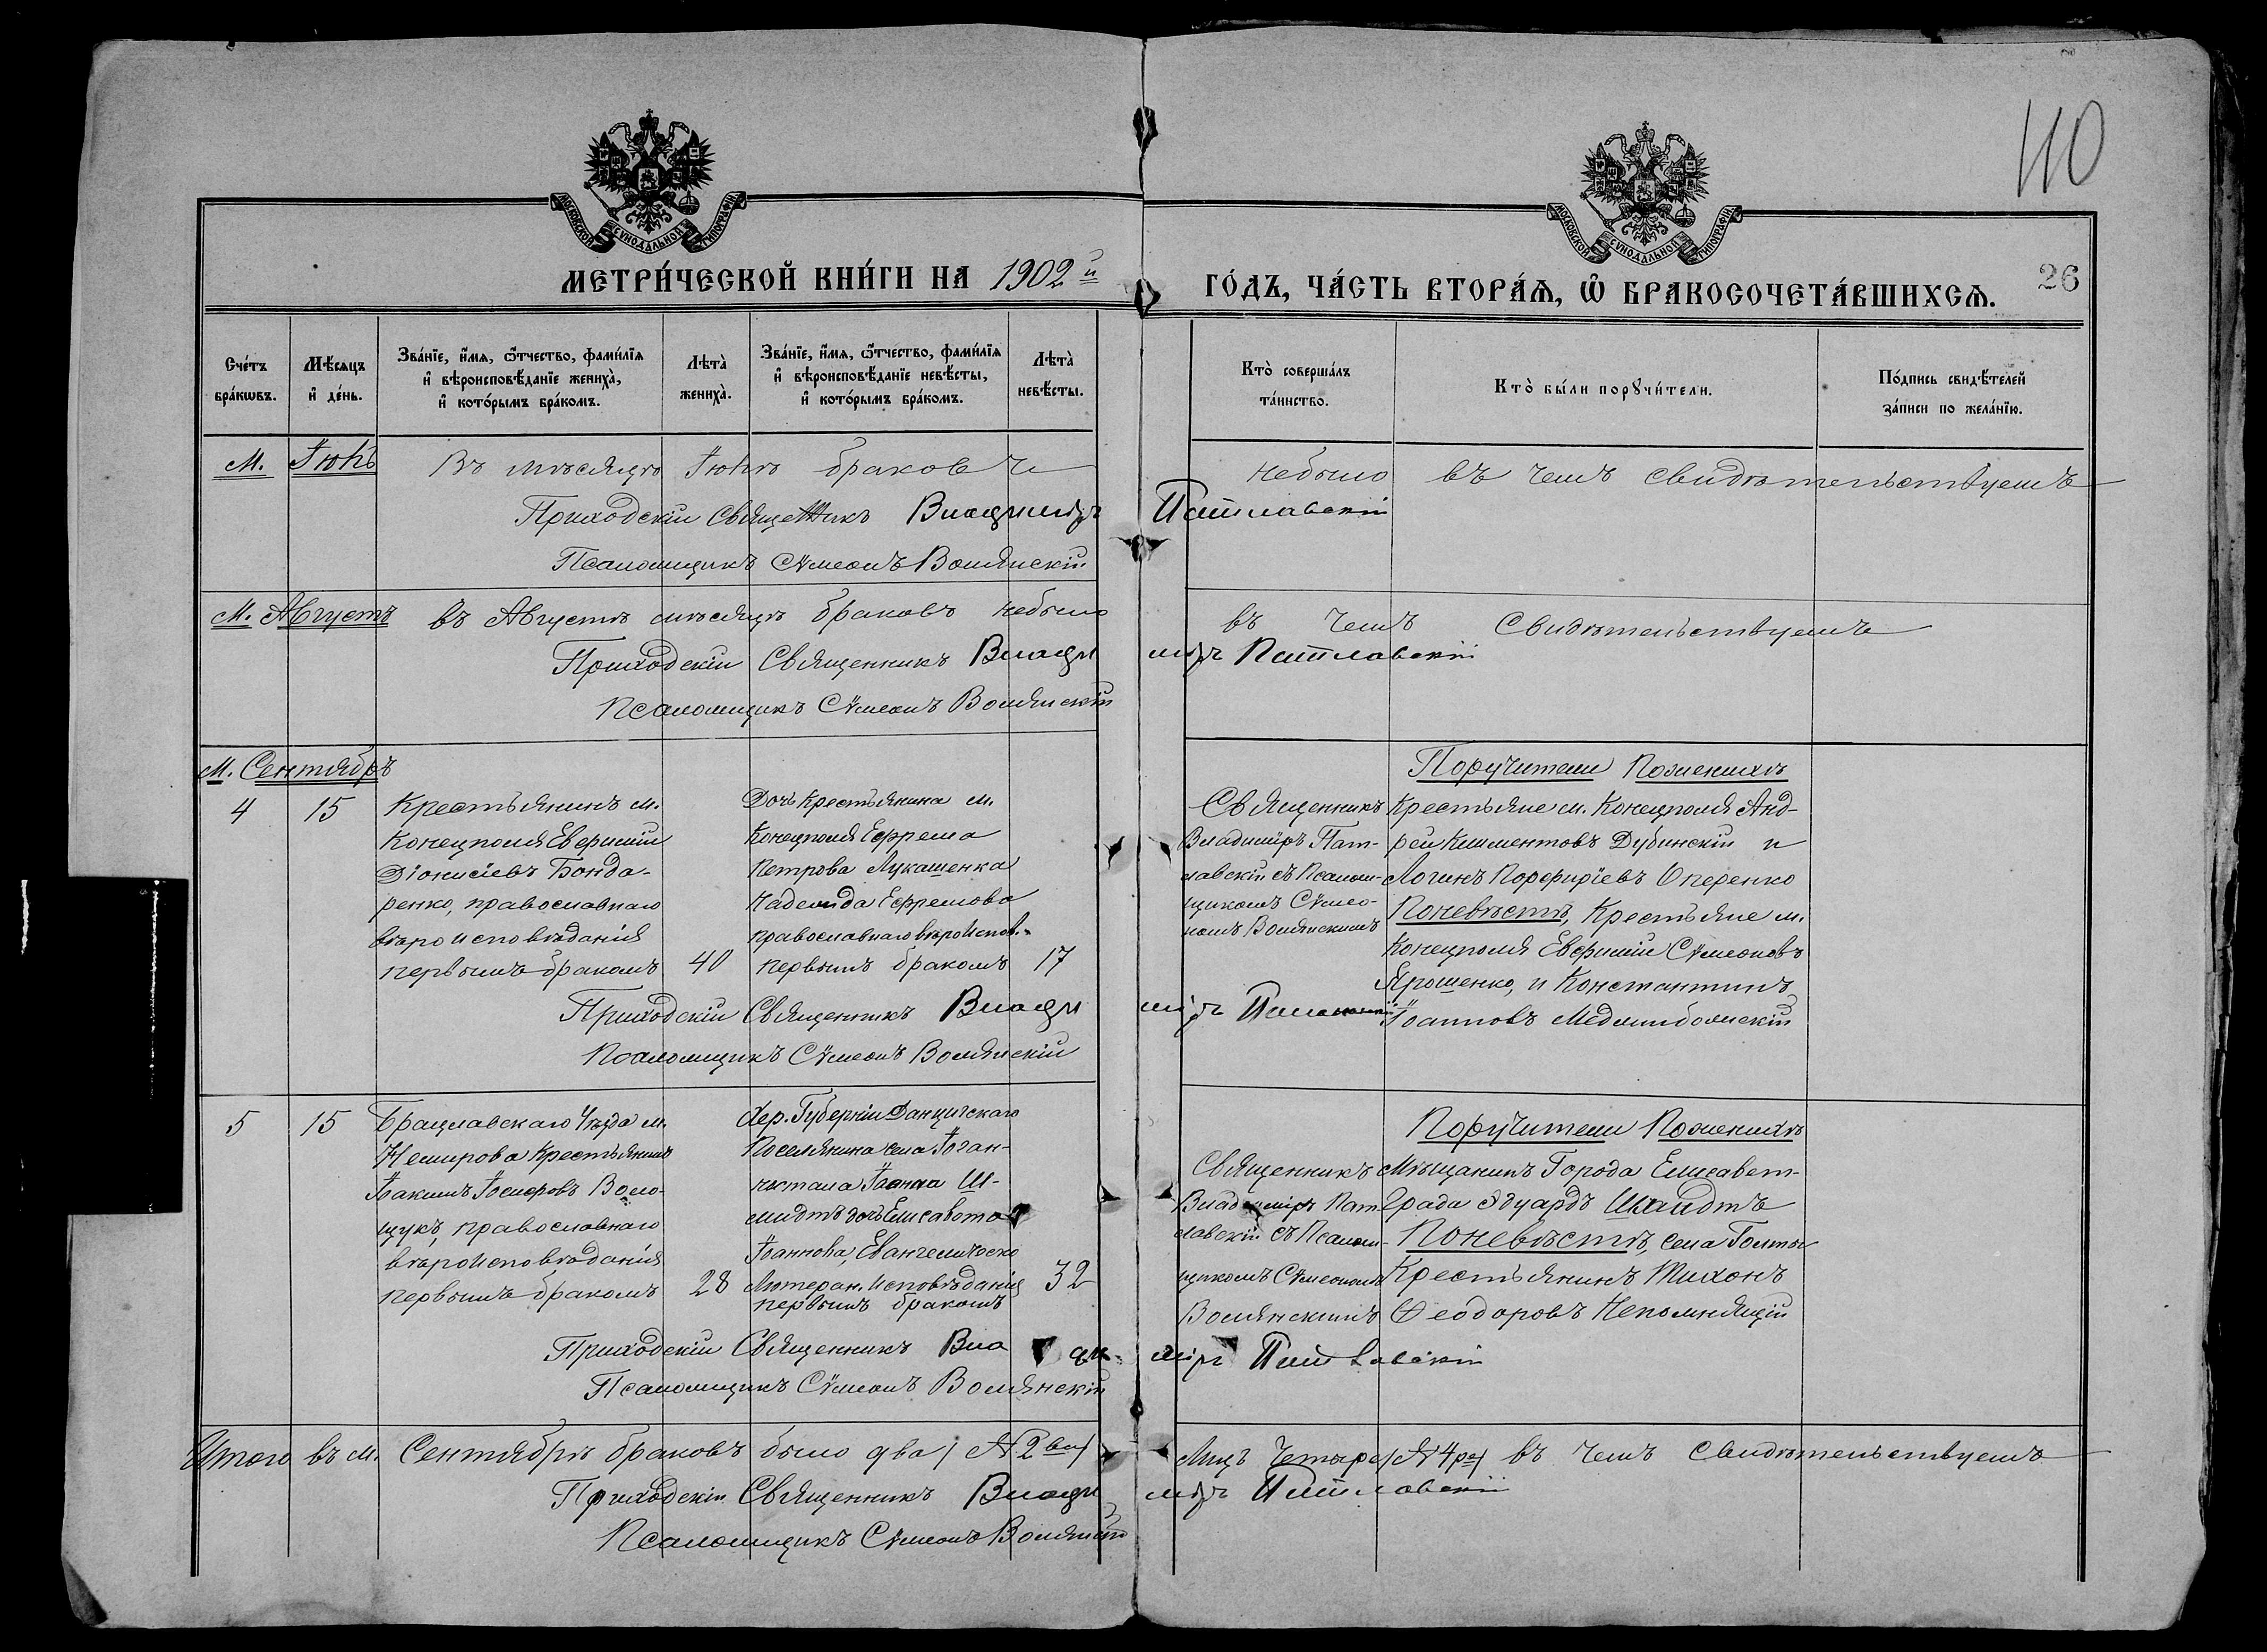 110
МОСКОВСКОЙ СѴНОДАЛЬНОЙ ТИПОГРАФІИ
МОСКОВСКОЙ СѴНОДАЛЬНОЙ ТИПОГРАФІИ
МЕТРИ́ЧЕСКОЙ КНИ́ГИ НА 1902й ГО́ДЪ, ЧА́СТЬ ВТОРА́Ѧ, Ѡ҆ БРАКОСОЧЕТА́ВШИХСѦ.
26
Сче́тъ бра́кѡвъ.
Мѣ́сѧцъ и҆ де́нь.
Зва́нїе, и҆́мѧ, ѻ҆́тчество, фами́лїѧ и҆ вѣроисповѣ́данїе жениха̀, и҆ кото́рымъ бра́комъ.
Лѣта̀ жениха̀.
Зва́нїе, и҆́мѧ, ѻ҆́тчество, фами́лїѧ и҆ вѣроисповѣ́данїе невѣ́сты, и҆ кото́рымъ бра́комъ.
Лѣта̀ невѣ́сты.
Кто̀ соверша́лъ та́инство.
Кто̀ бы́ли порꙋчи́тели.
По́дпись свидѣ́телей за́писи по жела́нїю.
М. Іюль
Въ мѣсяцѣ Іюлѣ браковъ небыло въ чемъ свидѣтельствуемъ
Приходскій Священникъ Владиміръ Патлавскій
Псаломщикъ Сѵмеонъ Волянскій
М. Августъ
въ Августѣ мѣсяцѣ браковъ небыло въ чемъ Свидѣтельствуемъ
Приходскій Священникъ Владиміръ Патлавскій
Псаломщикъ Сѵмеонъ Волянскій
М. Сентябрь
4
15
Крестьянинъ м.
Конецполя Евфимій
Діонисіевъ Бонда-
ренко, православнаго
вѣроисповѣданія
первымъ бракомъ
40
Дочь Крестьянина м.
Конецполя Ефрема
Петрова Лукашенка
Надежда Ефремова
православнаго вѣроиспов.
первымъ бракомъ
17
Священникъ
Владиміръ Пат-
лавскій съ Псалом-
щикомъ Сѵмео-
номъ Волянскимъ
Поручители Поженихѣ
Крестьяне м. Конецполя Анд-
рей Климентовъ Дубинскій и
Логинъ Порфиріевъ Оперенко
Поневѣстѣ, Крестьяне м.
Конецполя Евфимій Сѵмеоновъ
Ярошенко, и Константинъ
Іоанновъ
Приходскій Священникъ Владиміръ Патлавскій
Псаломщикъ Сѵмеонъ Волянскій
5
15
Брацлавскаго Уѣзда м.
Немирова Крестьянинъ
Іоакимъ Іосифовъ Воло-
щукъ, православнаго
вѣроисповѣданія
первымъ бракомъ
28
Хер. Губерніи Данцигскаго
Поселянина села Іоган-
нестала Іоанна Ш-
мидтъ дочь Елисавета
Іоаннова, Евангелическо
Лютеран. исповѣданія
первымъ бракомъ
32
Священникъ
Владиміръ Пат-
лавскій съ Псалом-
щикомъ Сѵмеономъ
Волянскимъ
Поручители Поженихѣ
Мѣщанинъ Города Елисавет-
града Эдуардъ Шмидтъ
Поневѣстѣ, села Голты
Крестьянинъ Тихонъ
Ѳеодоровъ Непомнящій
Приходскій Священникъ Владиміръ Патлавскій
Псаломщикъ Сѵмеонъ Волянскій
Итого въ м. Сентябрѣ браковъ было два / № 2ва / Лицъ Четыре / № 4ре / въ чемъ Свидѣтельствуемъ
Приходскій Священникъ Владиміръ Патлавскій
Псаломщикъ Сѵмеонъ Волянскій